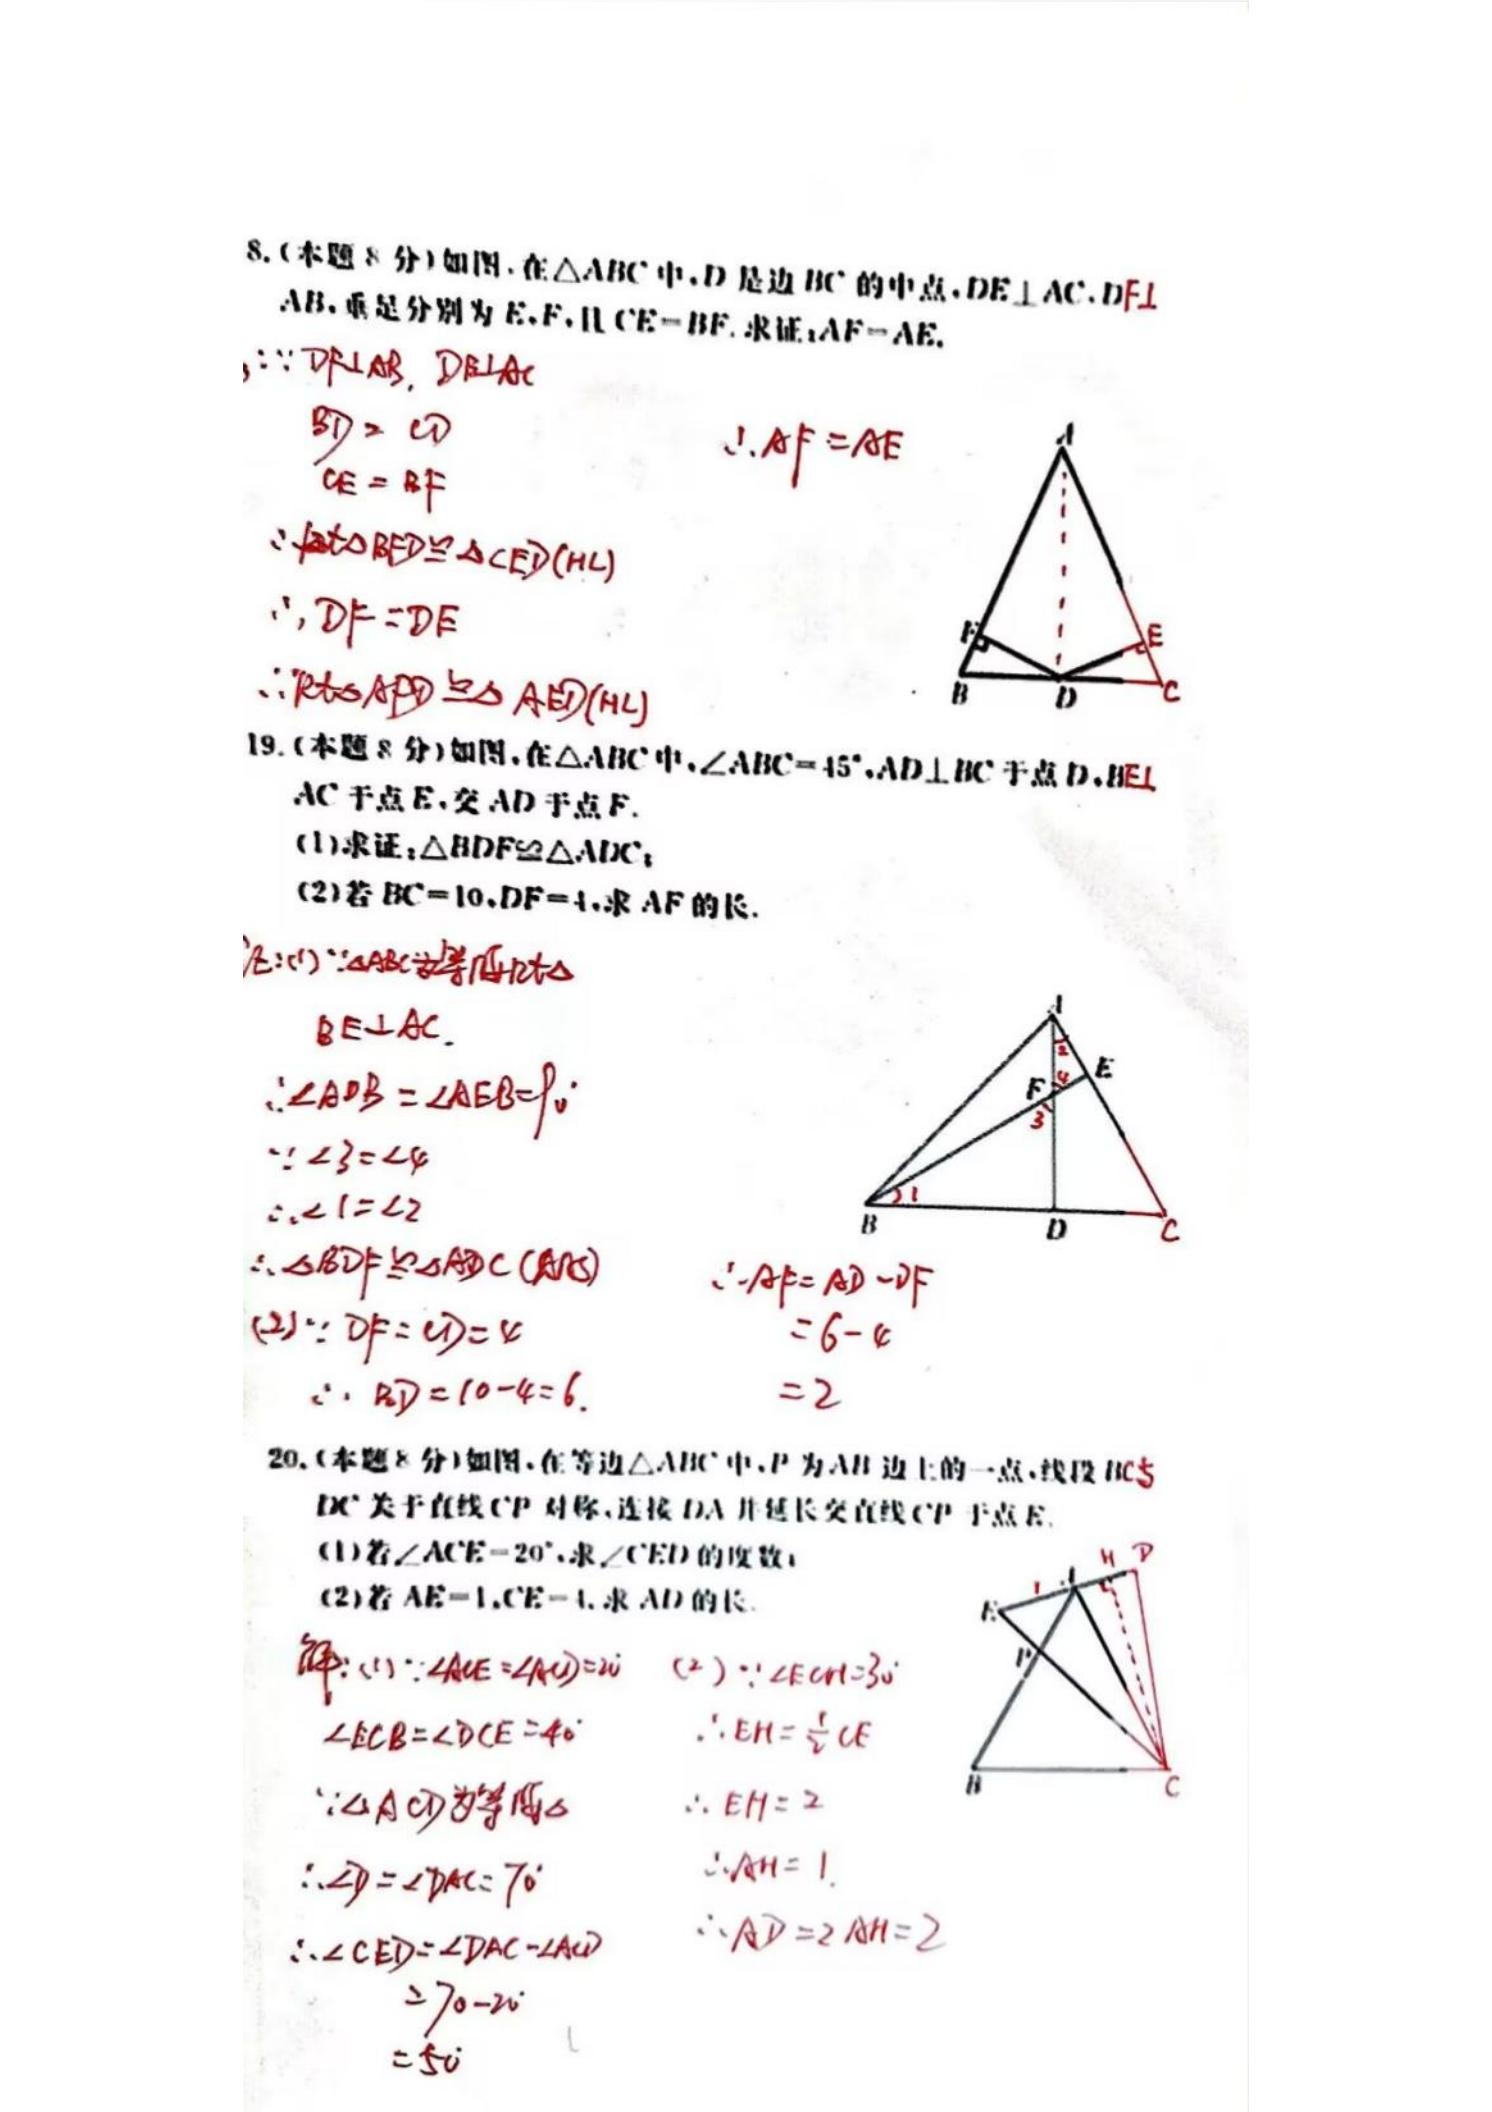 8.(本题 8 分)如图,在△ABC 中,D 是边 BC 的中点,DE⊥AC,DF⊥
AB,垂足分别为 E,F,且 CE=BF.求证:AF=AE.
∵DF⊥AB, DE⊥AC
BD = CD
CE = BF
∴Rt△BFD≌△CED(HL)
∴DF=DE
∴Rt△AFD≌△AED(HL)
∴AF=AE
A
F
E
B
D
C
19.(本题 8 分)如图,在△ABC 中,∠ABC=45°,AD⊥BC 于点 D,BE⊥
AC 于点 E,交 AD 于点 F.
(1)求证:△BDF≌△ADC;
(2)若 BC=10,DF=4,求 AF 的长.
证:(1)∵△ABC为等腰Rt△
BE⊥AC.
∴∠ADB=∠AEB=90°
∵∠3=∠4
∴∠1=∠2
∴△BDF≌△ADC(AAS)
(2)∵DF=CD=4
∴BD=10-4=6.
∴AF=AD-DF
=6-4
=2
A
2
E
F 4
3
1
B
D
C
20.(本题 8 分)如图,在等边△ABC 中,P 为 AB 边上的一点,线段 BC与
DC 关于直线 CP 对称,连接 DA 并延长交直线 CP 于点 E.
(1)若∠ACE=20°,求∠CED 的度数;
(2)若 AE=1,CE=4,求 AD 的长.
解:(1)∵∠ACE=∠ACD=20°
∠ECB=∠DCE=40°
∵△ACD为等腰△
∴∠D=∠DAC=70°
∴∠CED=∠DAC-∠ACD
=70-20°
=50°
(2)∵∠ECH=30°
∴EH=1/2CE
∴EH=2
∴AH=1.
∴AD=2AH=2
H D
1 A
E
P
B
C